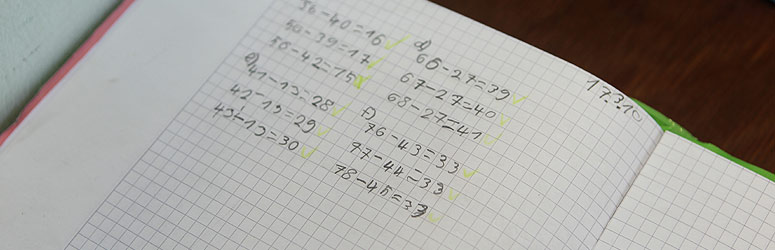 56-40=16
56-39=17
56-42=15
e) 41-13=28
42-13=29
43-13=30
17.3.10
d)
66-27=39
67-27=40
68-27=41
f)
76-43=33
77-44=33
78-45=33